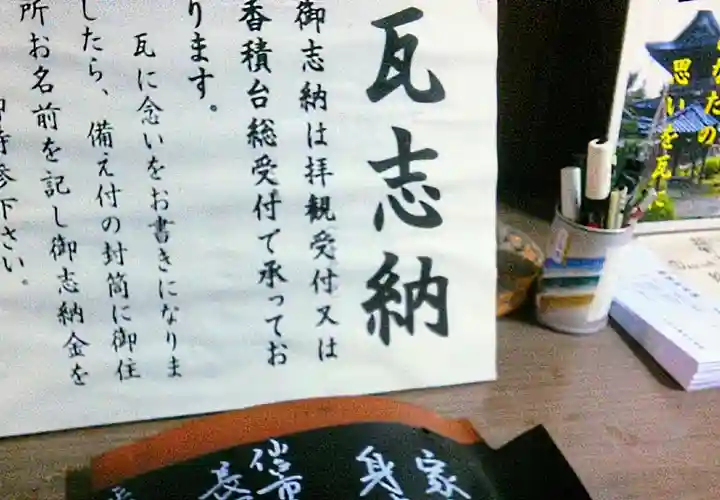 瓦志納
御志納は拝観受付又は
香積台総受付で承ってお
ります。
瓦に念いをお書きになりま
したら、備え付の封筒に御住
所お名前を記し御志納金を
参下さい。
なたの
思いを瓦
家
身
仙台市
長